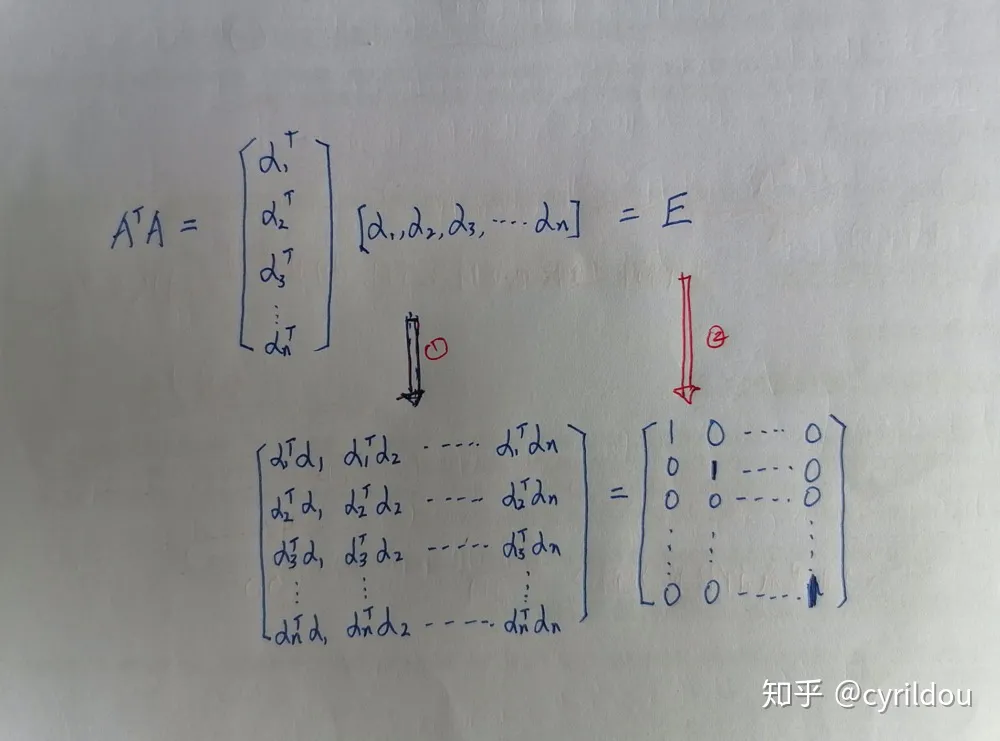 AᵀA = [α₁ᵀ α₂ᵀ α₃ᵀ ⋮ αₙᵀ] [α₁, α₂, α₃, ···· αₙ] = E
① ②
α₁ᵀα₁ α₁ᵀα₂ ····· α₁ᵀαₙ 1 0 ···· 0
α₂ᵀα₁ α₂ᵀα₂ ···· α₂ᵀαₙ = 0 1 ···· 0
α₃ᵀα₁ α₃ᵀα₂ ····· α₃ᵀαₙ 0 0 ···· 0
⋮ ⋮ ⋮ ⋮ ⋮ ⋮
αₙᵀα₁ αₙᵀα₂ ····· αₙᵀαₙ 0 0 ····· 1
知乎 @cyrildou